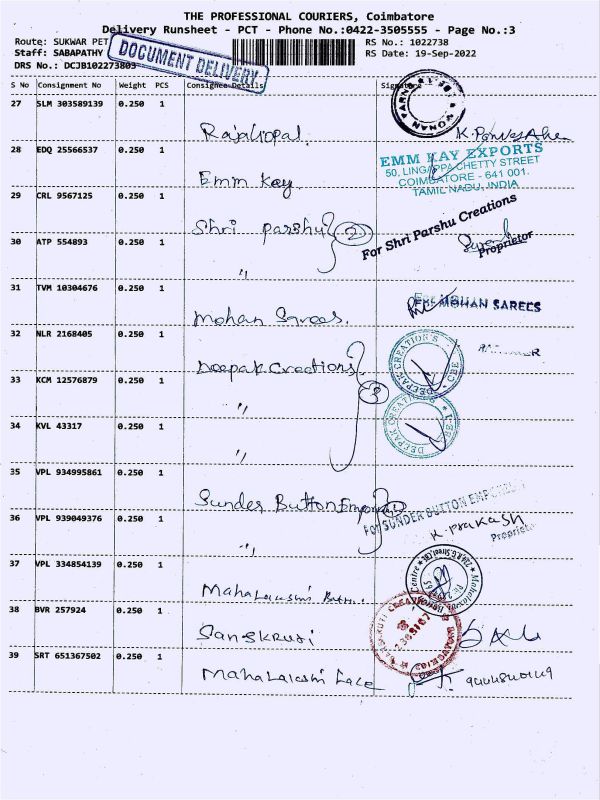 THE PROFESSIONAL COURIERS, Coimbatore
Delivery Runsheet - PCT - Phone No.:0422-3505555 - Page No.:3
Route: SUKWAR PET
RS No.: 1022738
Staff: SABAPATHY
RS Date: 19-Sep-2022
DRS No.: DCJB102273803
DOCUMENT DELIVERY
S No Consignment No Weight PCS Consignee Details Signature
27 SLM 303589139 0.250 1
Rajagopal
28 EDQ 25566537 0.250 1
EMM KAY EXPORTS
50, LINGAPPA CHETTY STREET
COIMBATORE - 641 001.
TAMIL NADU, INDIA
Emm Kay
29 CRL 9567125 0.250 1
Shri Parshu 2
For Shri Parshu Creations
Proprietor
30 ATP 554893 0.250 1
"
31 TVM 10304676 0.250 1
Mohan Sarees.
For MOHAN SAREES
32 NLR 2168405 0.250 1
Deepak Creations
DEEPAK CREATION'S CBE
33 KCM 12576879 0.250 1
" 3
DEEPAK CREATION'S CBE
34 KVL 43317 0.250 1
"
35 VPL 934995861 0.250 1
Sunder Button Emporium
For SUNDER BUTTON EMPORIUM
K. Prakash
Proprietor
36 VPL 939049376 0.250 1
"
37 VPL 334854139 0.250 1
Mahalakshmi
38 BVR 257924 0.250 1
Sanskruti
39 SRT 651367502 0.250 1
Mahalakshmi Lace